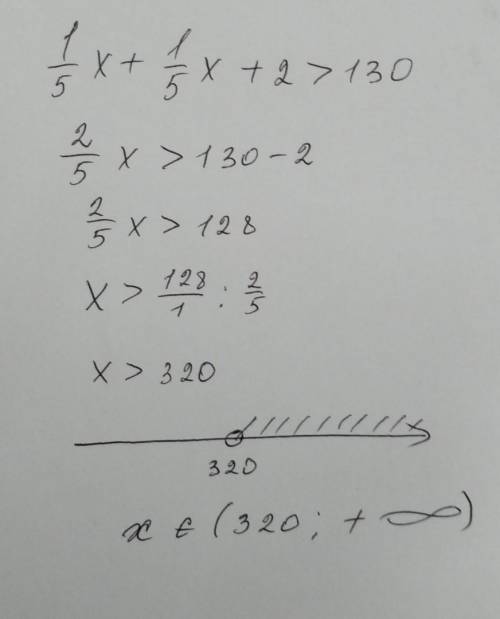 1/5 x + 1/5 x + 2 > 130
2/5 x > 130 - 2
2/5 x > 128
x > 128/1 : 2/5
x > 320
320
x
x ∈ (320; +∞)